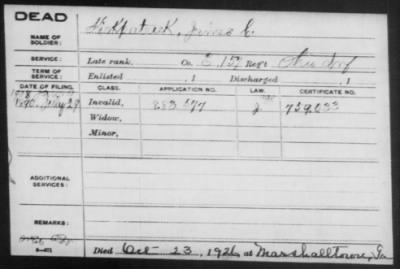 DEAD
NAME OF SOLDIER: Kirkpatrick, James C.
SERVICE: Late rank, Co. E, 157 Reg't Ohio Inf
TERM OF SERVICE: Enlisted , 1 Discharged , 1
DATE OF FILING. CLASS. APPLICATION NO. LAW. CERTIFICATE NO.
1890, May 29 Invalid, 883 577 J 729,033
Widow,
Minor,
ADDITIONAL SERVICES:
REMARKS:
Died Oct 23, 1926, at Marshalltown, Ia